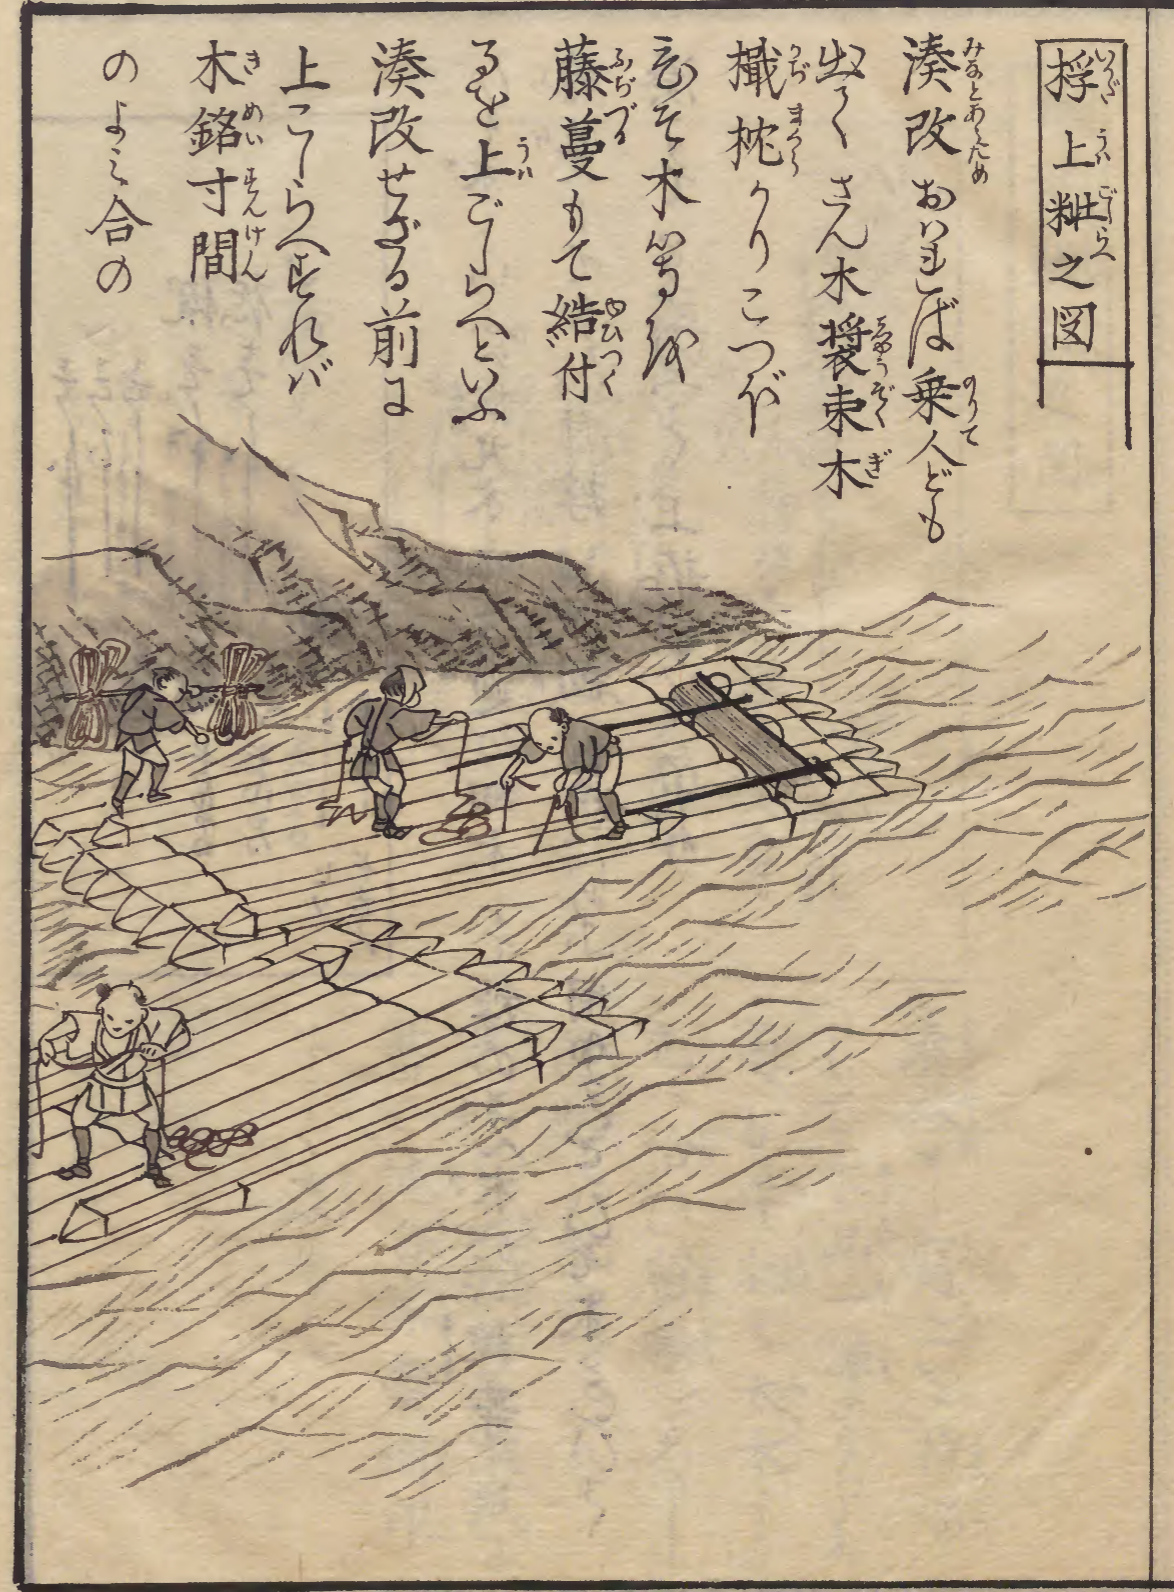 桴上粧之図
湊改おハれば乗人ども
出てさん木装束木
檝枕かりこつぼ
むそ木等を
藤蔓もて結付
るを上ごしらへといふ
湊改せざる前に
上こしらへすれバ
木銘寸間
のよミ合の